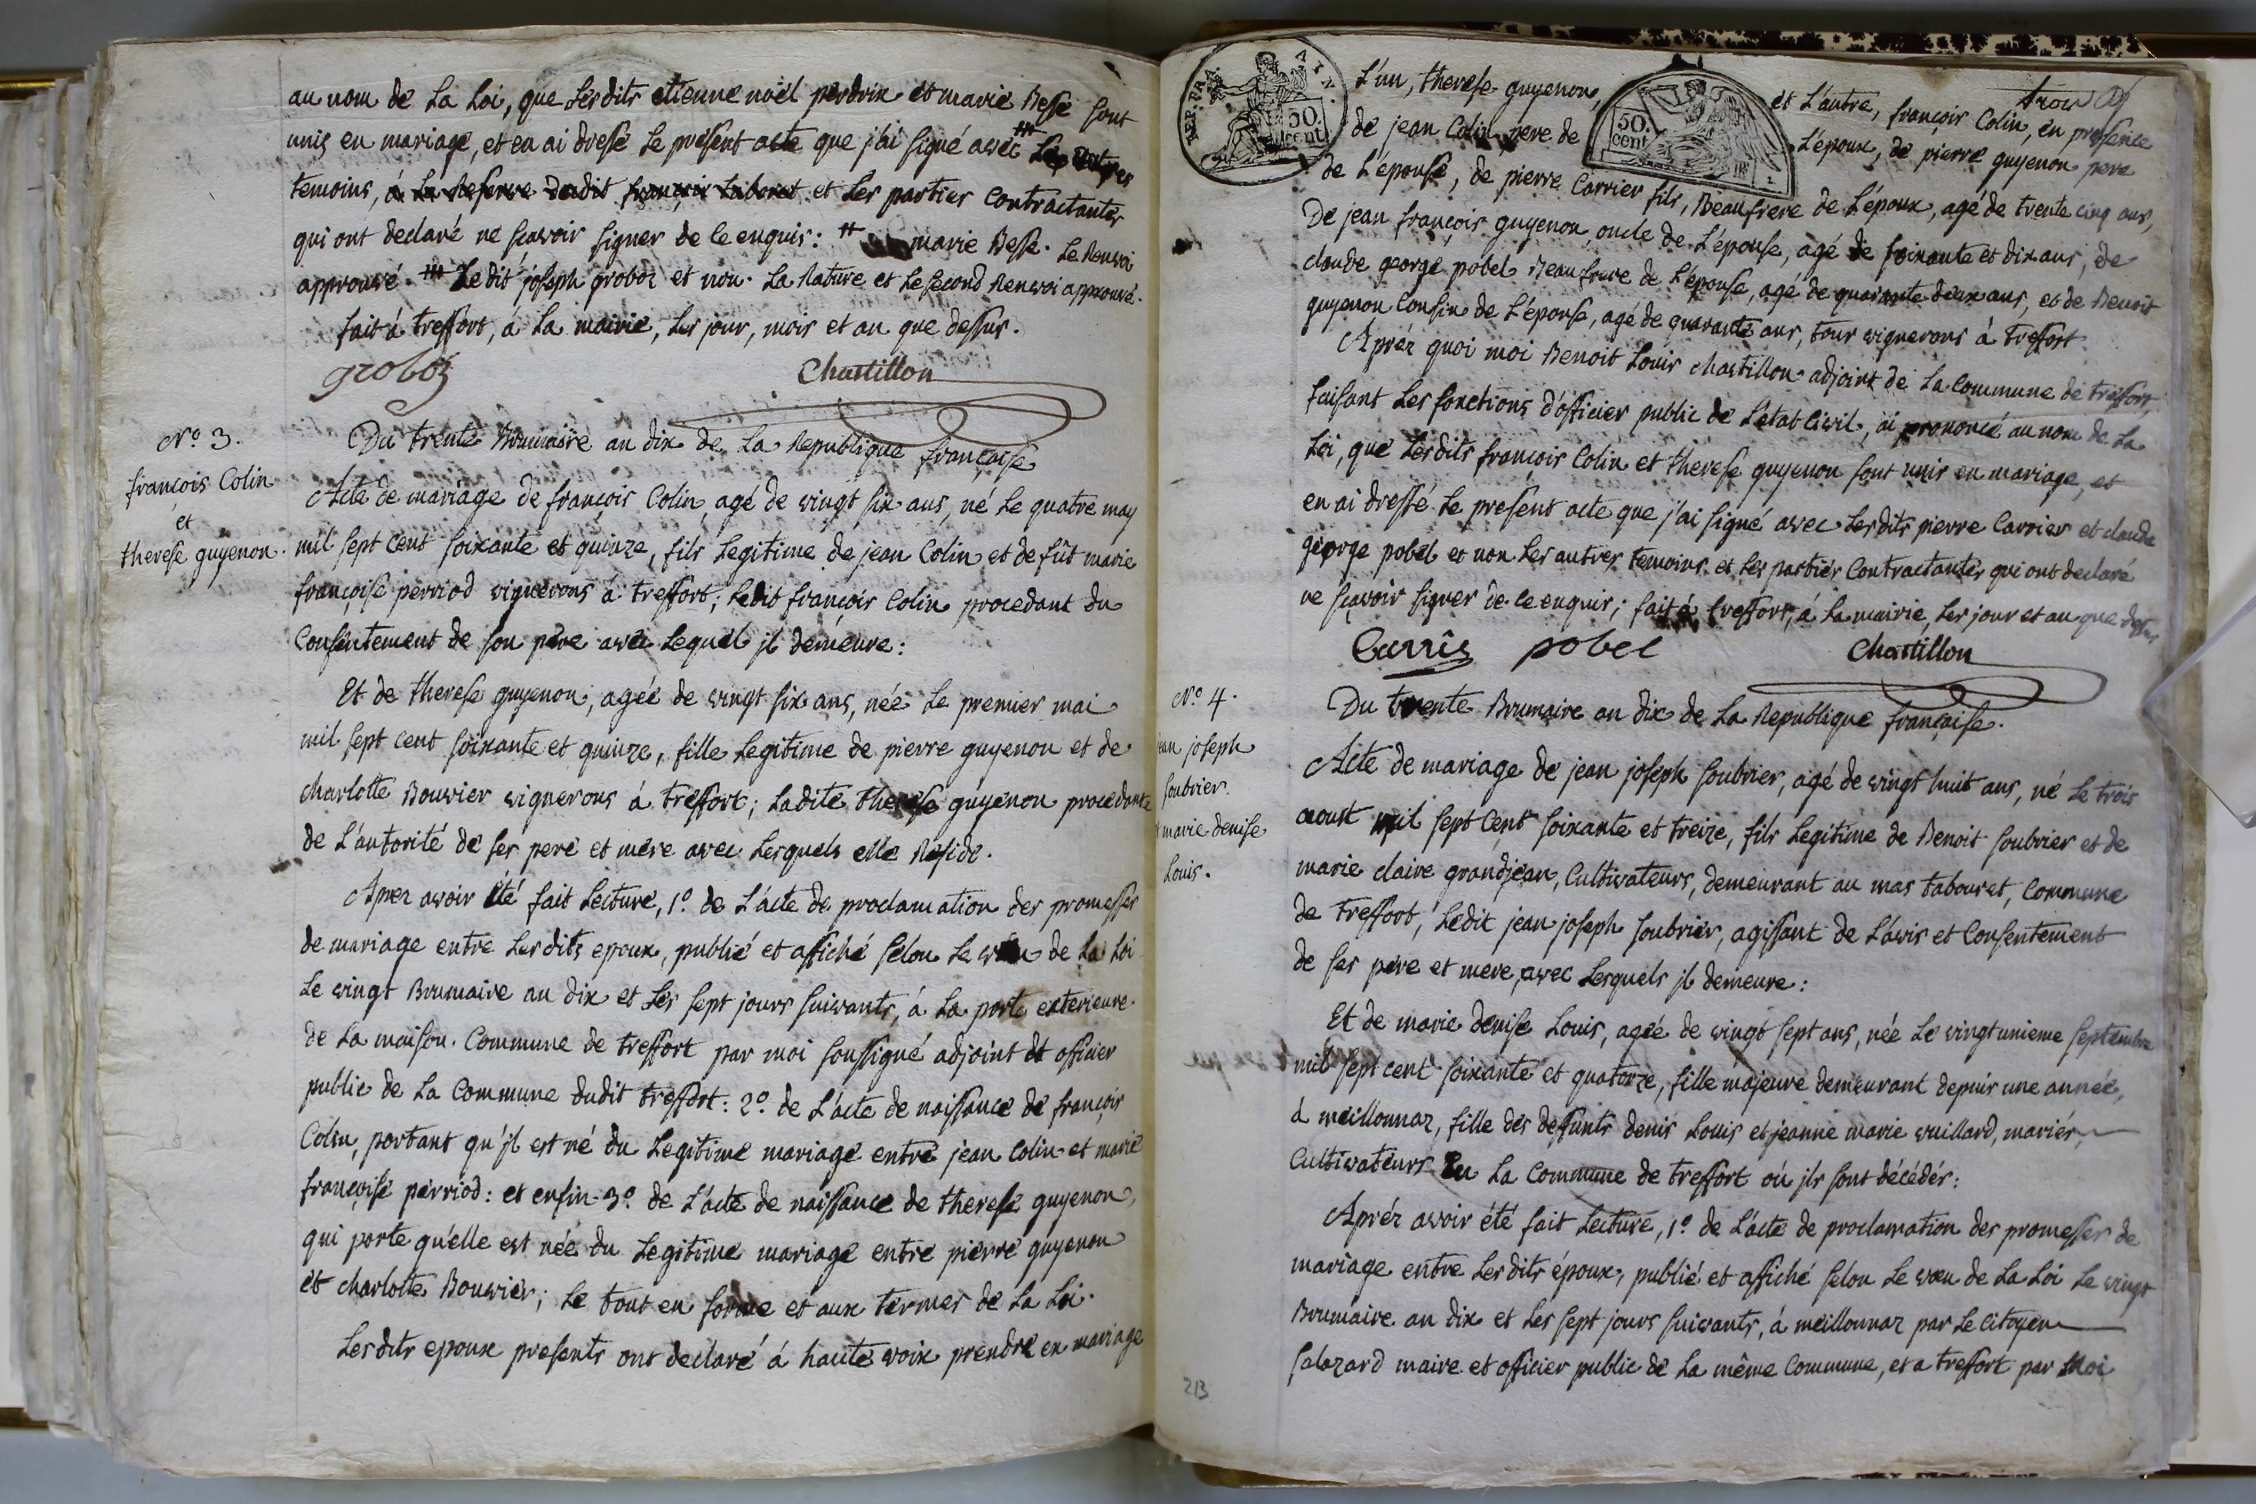 au nom de La Loi, que Lesdits etienne noël perdrix et marie Besse sont
unis en mariage, et en ai dressé Le présent acte que j'ai signé avec ### Les autres
temoins, à La Reserve dudit françois Laboret et Les parties Contractantes
qui ont declaré ne sçavoir signer de Ce enquis: ## marie Besse. Le Renvoi
approuvé. ### Ledit joseph groboz et non. La Rature et Le second Renvoi approuvé.
fait à treffort, à La mairie, Les jour, mois et an que dessus.
groboz Chastillon
N.o 3.
françois Colin
et
therese guyenon.
Du trente Brumaire an dix de La Republique françoise
Acte de mariage de françois Colin, agé de vingt six ans, né Le quatre may
mil sept cent soixante et quinze, fils Legitime de jean Colin et de fût marie
françoise perriod vignerons à treffort; Ledit françois Colin procedant du
Consentement de son père avec Lequel jl demeure:
Et de therese guyenon, agée de vingt six ans, née Le premier mai
mil sept cent soixante et quinze, fille Legitime de pierre guyenon et de
charlotte Bouvier vignerons à treffort; Ladite therese guyenon procedante
de L'autorité de ses pere et mère avec Lesquels elle Réside.
Aprez avoir été fait Lecture, 1.o de L'acte de proclamation des promesses
de mariage entre Lesdits epoux, publié et affiché sélon Le vœu de La Loi
Le vingt Brumaire an dix et Les sept jours suivants, à La porte exterieure
de La maison Commune de treffort par moi soussigné adjoint et officier
public de La Commune dudit treffort: 2.o de L'acte de naissance de françois
Colin, portant qu'jl est né du Legitime mariage entre jean Colin et marie
françoise perriod: et enfin 3.o de L'acte de naissance de therese guyenon,
qui porte qu'elle est née du Legitime mariage entre pierre guyenon
et charlotte Bouvier; Le tout en forme et aux termes de La Loi.
Lesdits epoux presents ont declaré à haute voix prendre en mariage
trois
REP. FRA. AIN.
50. cent
50. cent
L'un, therese guyenon, et L'autre, françois Colin, en presence
de jean Colin pere de L'époux, de pierre guyenon pere
de L'épouse, de pierre Carrier fils, Beaufrere de L'époux, agé de trente cinq ans,
De jean françois guyenon oncle de L'épouse, agé de soixante et dix ans, de
claude george pobel Beaufrere de L'épouse, agé de quarante deux ans, et de Benoit
guyenon Cousin de L'épouse, agé de quarante ans, tous vignerons à treffort.
Apréz quoi moi Benoit Louis chastillon adjoint de La Commune de treffort,
faisant Les fonctions d'officier public de L'état Civil, ai prononcé au nom de La
Loi, que Lesdits françois Colin et therese guyenon sont unis en mariage, et
en ai dressé Le present acte que j'ai signé avec Lesdits pierre Carrier et claude
george pobel et non Les autres temoins et Les parties Contractantes qui ont declaré
ne sçavoir signer de Ce enquis; fait à treffort, à La mairie, Les jour et an que dessus,
Carriê pobel Chastillon
N.o 4.
jean joseph
soubrier.
et marie denise
Louis.
Du trente Brumaire an dix de La Republique françaisse.
Acte de mariage de jean joseph soubrier, agé de vingt huit ans, né Le trois
aoust mil sept Cent soixante et treize, fils Legitime de Benoit soubrier et de
marie claire grandjean, Cultivateurs, demeurant au mas tabouret, Commune
de treffort, Ledit jean joseph soubrier, agissant de L'avis et Consentement
de ses pere et mere, avec Lesquels jl demeure:
Et de marie denise Louis, agée de vingt sept ans, née Le vingt unieme septembre
mil sept cent soixante et quatorze, fille majeure demeurant depuis une année,
à meillonnaz, fille des deffunts denis Louis et jeanne marie vuillard, mariés,
Cultivateurs En La Commune de treffort où jls sont décédés:
Apréz avoir été fait Lecture, 1.o de L'acte de proclamation des promesses de
mariage entre Lesdits époux, publié et affiché sélon Le vœu de La Loi Le vingt
Brumaire an dix et Les sept jours suivants, à meillonnaz par Le Citoyen
salazard maire et officier public de La même Commune, et a treffort par Moi
213